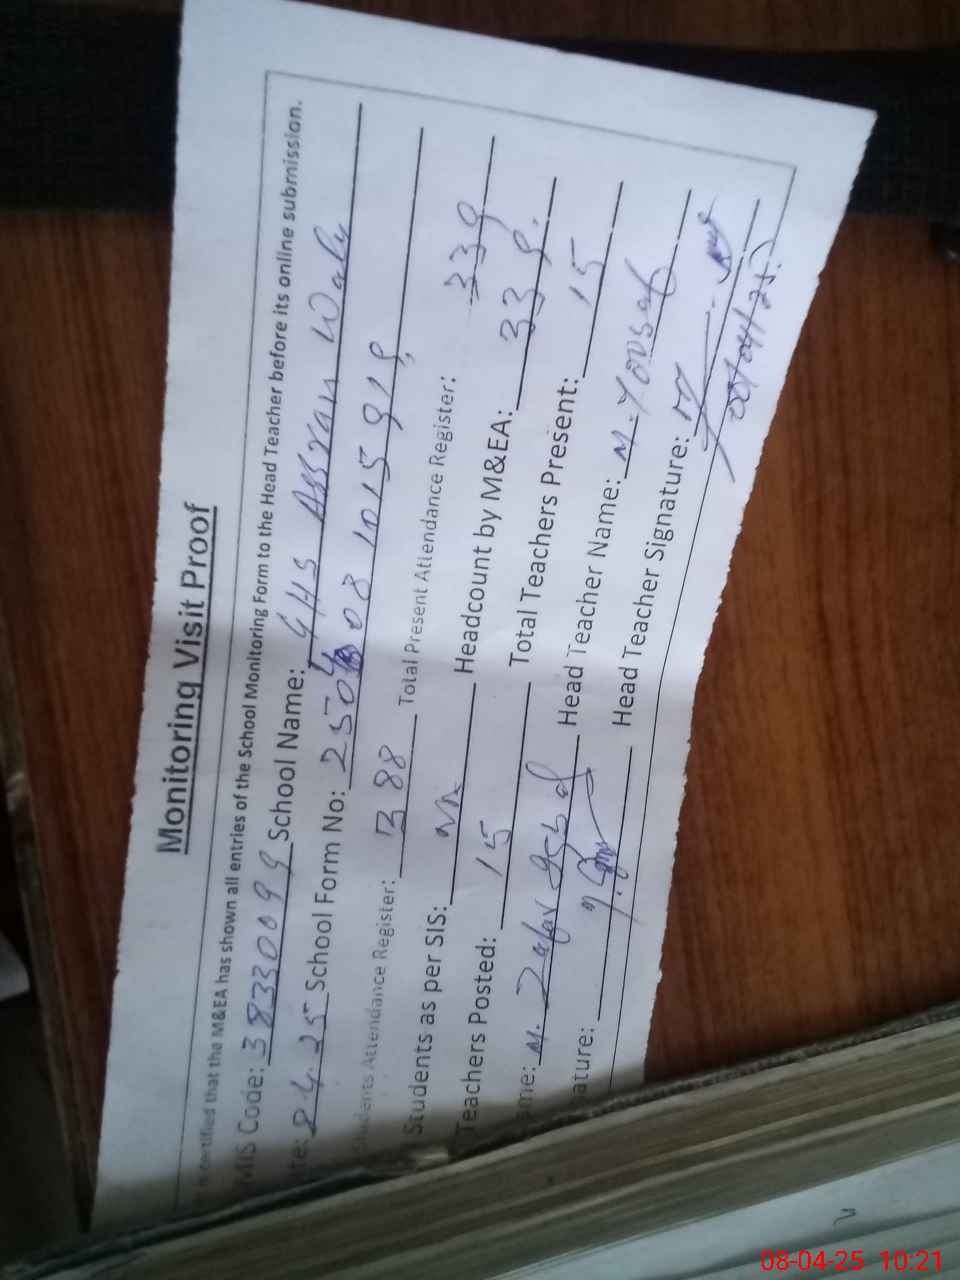 Monitoring Visit Proof
is certified that the M&EA has shown all entries of the School Monitoring Form to the Head Teacher before its online submission.
MIS Code: 38330099 School Name: GHS Assran Waly
te: 8.4.25 School Form No: 2504080810159 19.
tudents Attendance Register: 388 Total Present Attendance Register: 339
Students as per SIS: Headcount by M&EA: 339.
Teachers Posted: 15 Total Teachers Present: 15
ame: M. Zafar Head Teacher Name: M. Yousaf
nature: Head Teacher Signature:
08-04-25 10:21